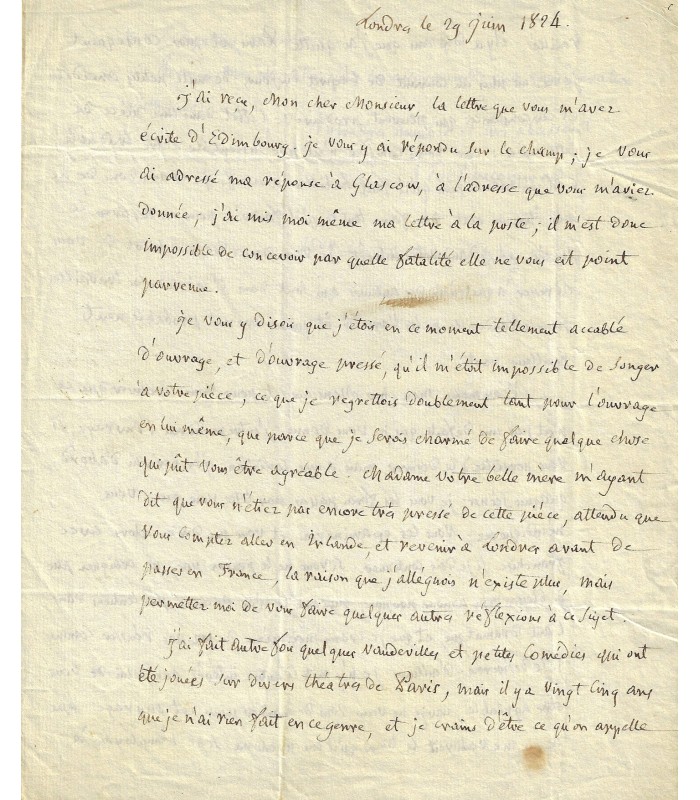 Londres le 29 juin 1824.
J'ai recu, Mon cher Monsieur, la lettre que vous m'avez
écrite d'Edimbourg. je vous y ai répondu sur le champ; je vous
ai adressé ma réponse à Glascow, à l'adresse que vous m'aviez
donnée; j'ai mis moi même ma lettre à la poste; il m'est donc
impossible de concevoir par quelle fatalité elle ne vous est point
parvenue.
Je vous y disois que j'étois en ce moment tellement accablé
d'ouvrage, et d'ouvrage pressé, qu'il m'étoit impossible de songer
à votre pièce, ce que je regrettois doublement tant pour l'ouvrage
en lui même, que parce que je serois charmé de faire quelque chose
qui pût vous être agréable. Madame votre belle mere m'ayant
dit que vous n'étiez pas encore très pressé de cette pièce, attendu que
vous comptez aller en Irlande, et revenir à Londres avant de
passer en France, la raison que j'alléguois n'existe plus, mais
permettez moi de vous faire quelques autres réflexions à ce sujet.
J'ai fait autrefois quelques Vaudevilles et petites Comédies qui ont
été jouées sur divers théatres de Paris, mais il y a vingt cinq ans
que je n'ai rien fait en ce genre, et je crains d'être ce qu'on appelle